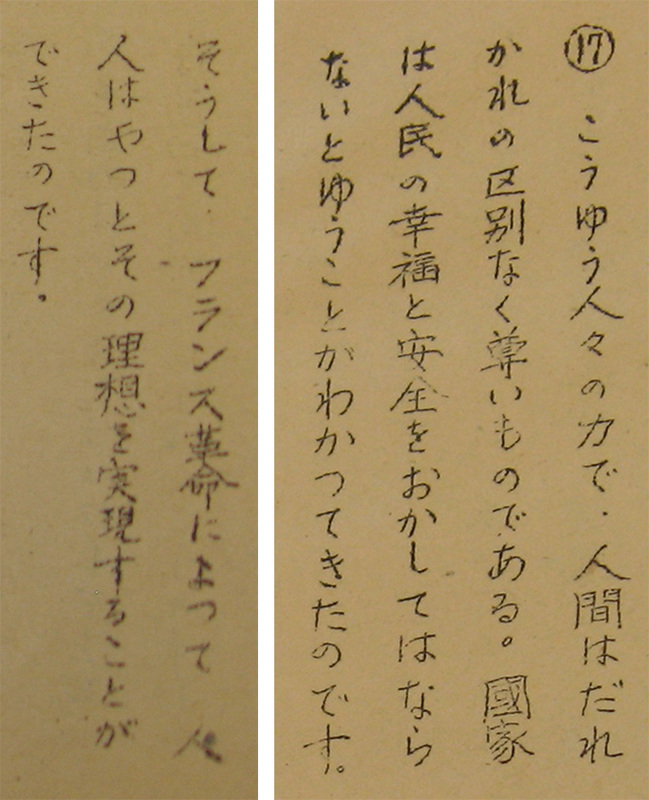 ⑰ こうゆう人々の力で、人間はだれ
かれの区別なく尊いものである。國家
は人民の幸福と安全をおかしてはなら
ないとゆうことがわかつてきたのです。
そうして、フランス革命によつて、人
人はやつとその理想を実現することが
できたのです。